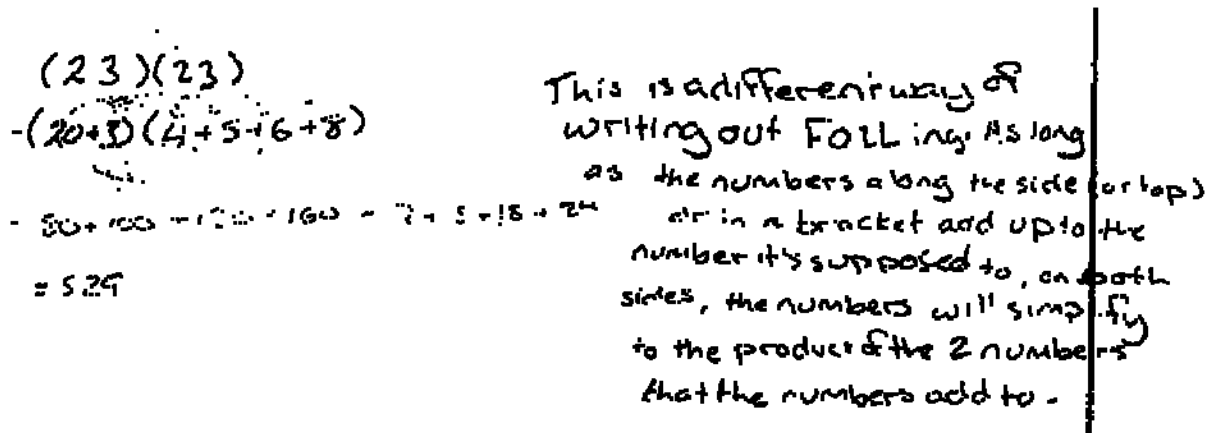 (23)(23)
-(20+3)(4+5+6+8)
- 80+100 +120+160 - + 5 +18 + 24
= 529
This is a different way of
writing out FOIL ing. As long
as the numbers along the side (or top)
or in a bracket add up to the
number it's supposed to, on both
sides, the numbers will simplify
to the product of the 2 numbers
that the numbers add to.